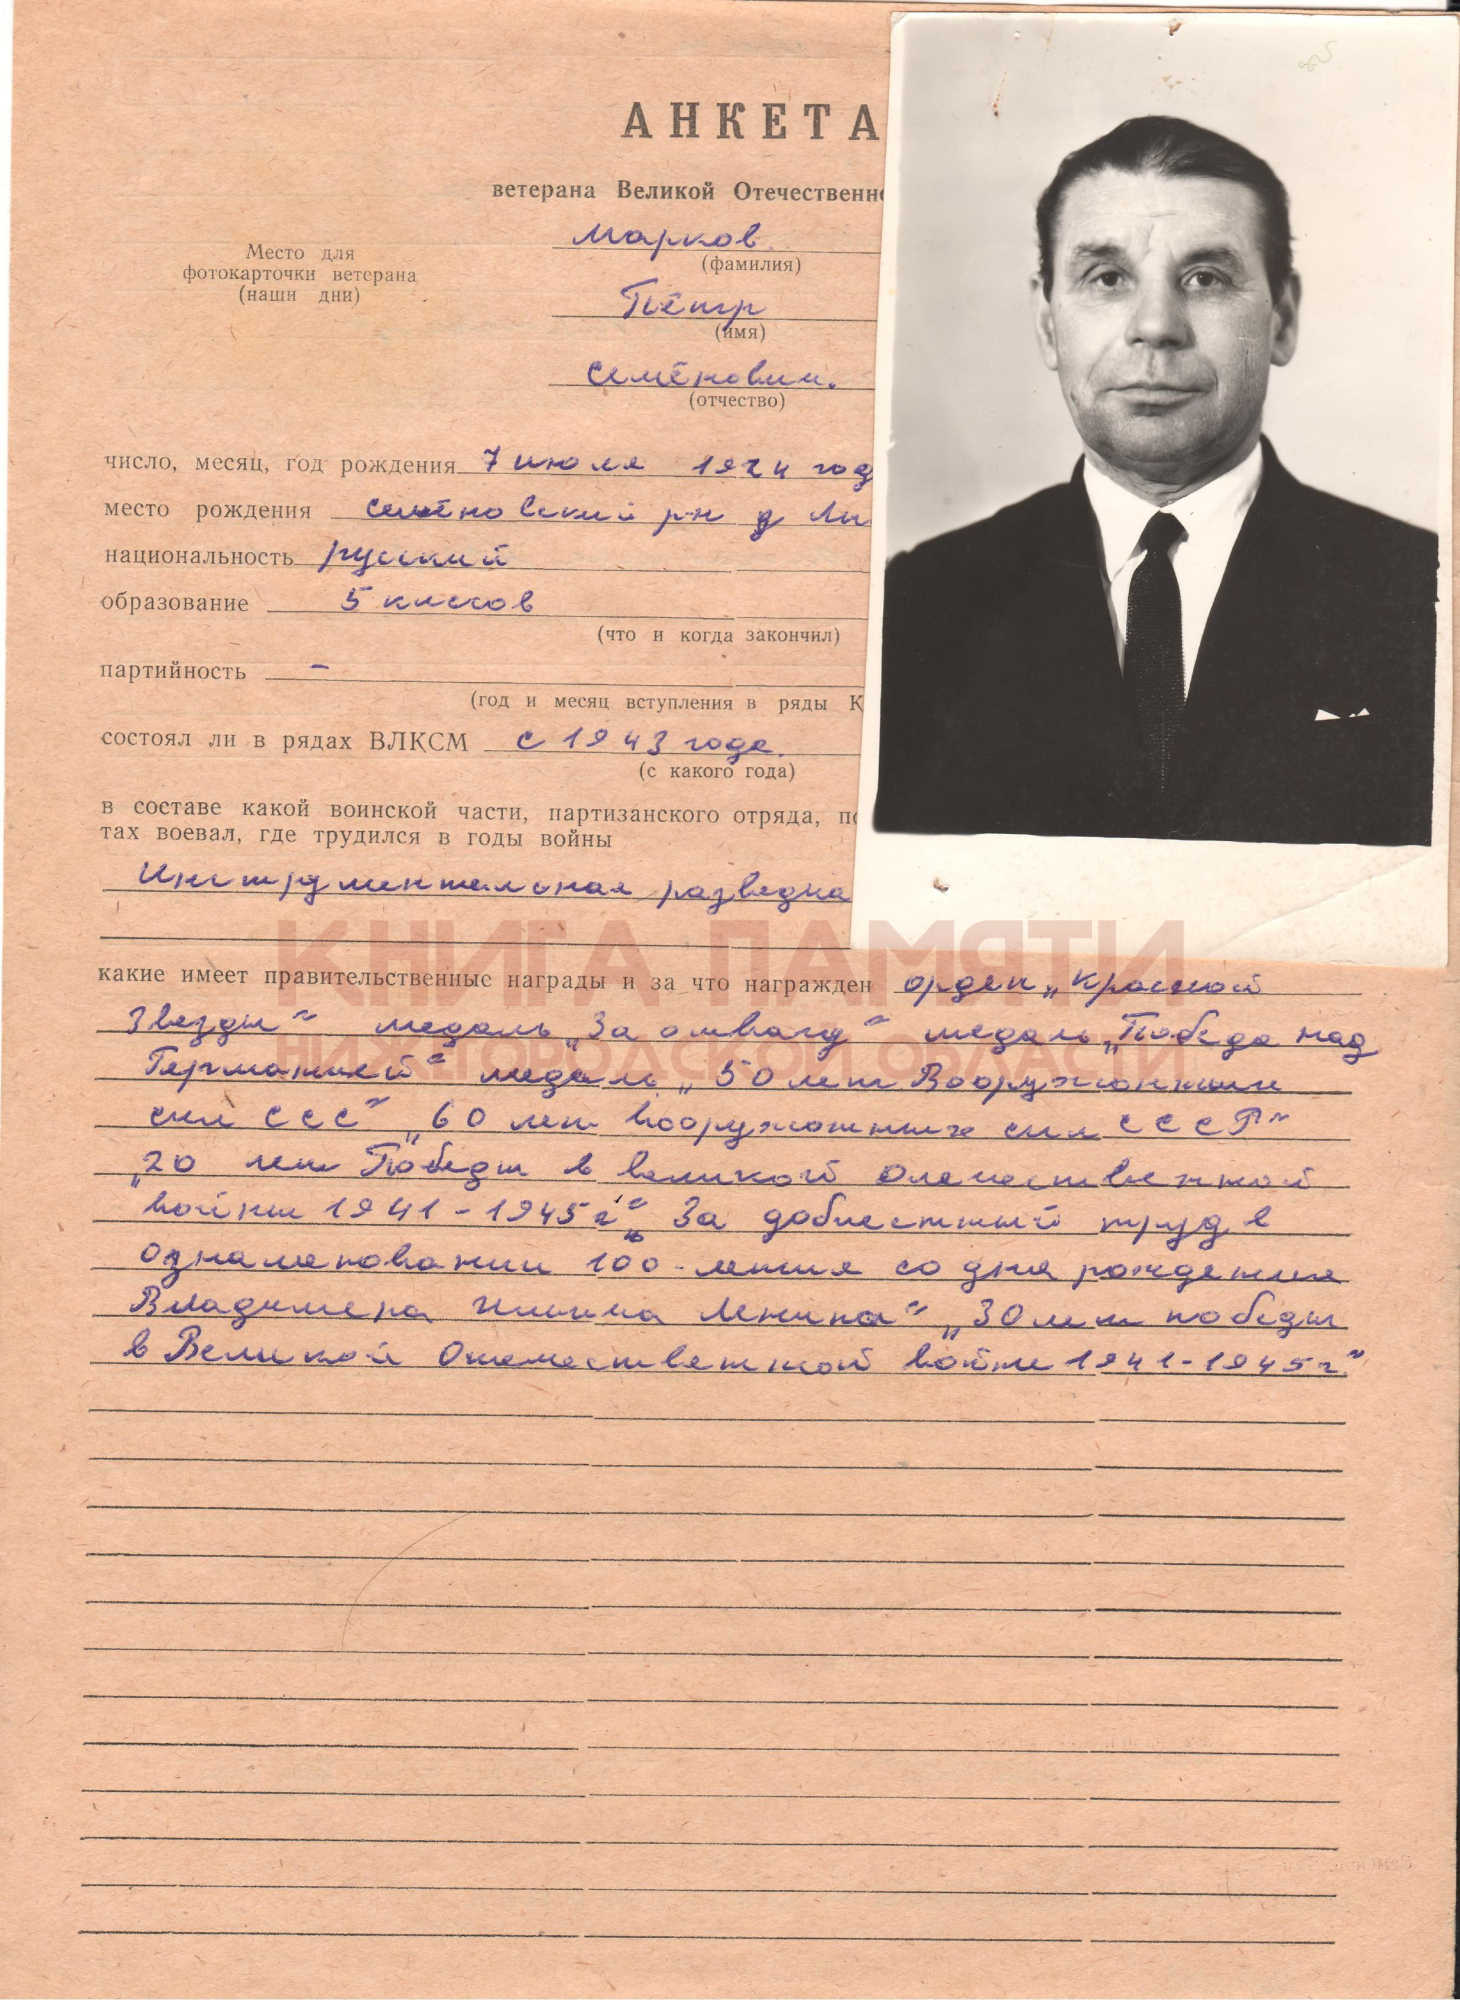 АНКЕТА
ветерана Великой Отечественно
Марков
(фамилия)
Место для
фотокарточки ветерана
(наши дни)
Пётр
(имя)
Семёнович.
(отчество)
число, месяц, год рождения 7 июля 1924 год
место рождения Семёновский р-н д
национальность русский
образование 5 классов
(что и когда закончил)
партийность –
(год и месяц вступления в ряды К
состоял ли в рядах ВЛКСМ с 1943 года.
(с какого года)
в составе какой воинской части, партизанского отряда, по
тах воевал, где трудился в годы войны
Инструментальная разведка
КНИГА ПАМЯТИ
какие имеет правительственные награды и за что награжден орден „Красной
Звезды“ медаль „За отвагу“ медаль „Победа над
НИЖЕГОРОДСКОЙ ОБЛАСТИ
Германией“ медаль „50 лет Вооружонных
сил ССС“ „60 лет вооружонных сил СССР“
„20 лет Победы в великой Отечественной
войны 1941-1945 г“ „За доблестный труд в
ознаменовании 100-летия со дня рождения
Владимера Ильича Ленина“ „30 лет победы
в Великой Отечественной войне 1941-1945 г.“